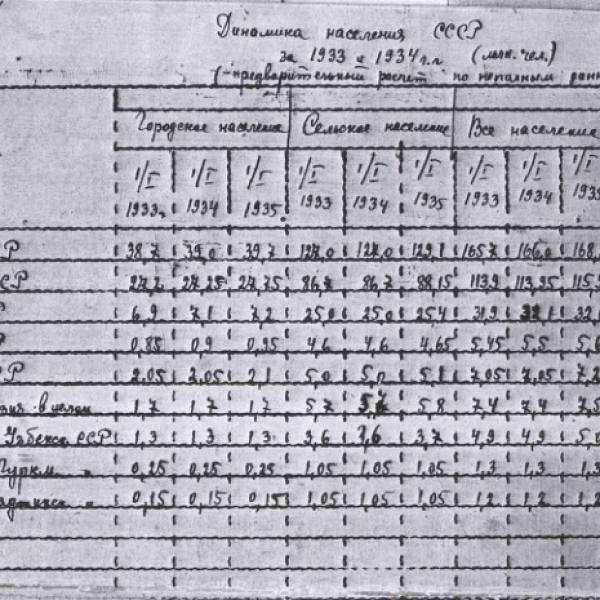 Динамика населения СССР
за 1933 и 1934 г.г. (млн. чел.)
(-предварительный расчет по неполным данн
Городское население Сельское население Все население
1/I 1/I 1/I 1/I 1/I 1/I 1/I 1/I 1/I
1933 1934 1935 1933 1934 1935 1933 1934 1935
Р 38,7 39,0 39,7 127,0 127,0 129,1 165,7 166,0 168,
СР 27,2 27,25 27,75 86,7 86,7 88,15 113,9 113,95 115,9
Р 6,9 7,1 7,2 25,0 25,0 25,4 31,9 32,1 32,
Р 0,85 0,9 0,95 4,6 4,6 4,65 5,45 5,5 5,6
СР 2,05 2,05 2,1 5,0 5,0 5,1 7,05 7,05 7,2
зия в целом 1,7 1,7 1,7 5,7 5,7 5,8 7,4 7,4 7,5
Узбекс. ССР 1,3 1,3 1,3 3,6 3,6 3,7 4,9 4,9 5,0
Туркм. " 0,25 0,25 0,25 1,05 1,05 1,05 1,3 1,3 1,3
аджикс. " 0,15 0,15 0,15 1,05 1,05 1,05 1,2 1,2 1,2